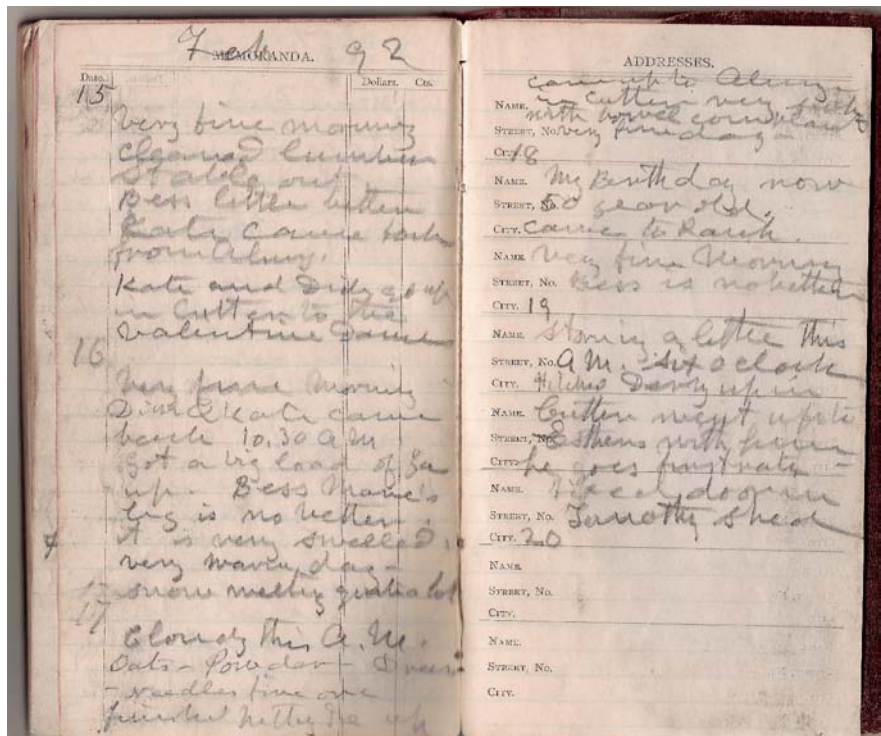 Feb 92
MEMORANDA.
Date. Dollars. Cts.
15
Very fine morning
cleaned lumber
Stable out
Bess little better
Kate came back
from Almy.
Kate and Dick go up
in Cutter to the
Valentine Dance
16
Very fine Morning
Dick & Kate came
back 10.30 A M
Got a big load of
up. Bess Mare's
leg is no better
it is very swelled
very warm day -
17 snow melting quite a lot
17
Cloudy this A.M.
Oats - Powder -
- needles fine one
finished
ADDRESSES.
came up to Almy
NAME. in cutter very sick
with bowel complaint
STREET, NO. very fine day
CITY. 18
NAME. My Birthday now
STREET, NO. 50 year old.
CITY. Came to Ranch.
NAME. Very fine Morning
STREET, NO. Bess is no better
CITY. 19
NAME. Storming a little this
STREET, NO. A M. six o clock
CITY. Hitched up in
NAME. Cutter went up to
STREET, NO. with
CITY. he goes
NAME. door in
STREET, NO. Timothy shed
CITY. 20
NAME.
STREET, NO.
CITY.
NAME.
STREET, NO.
CITY.